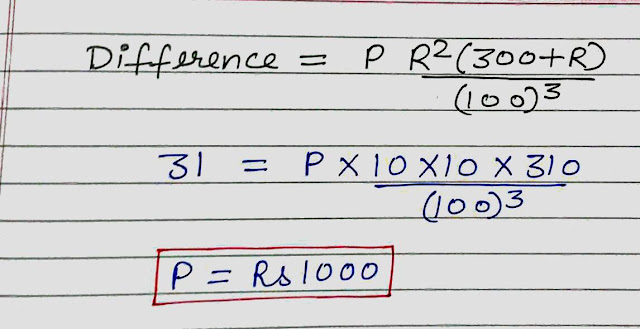 Difference = P R²(300+R)
(100)³
31 = P × 10 × 10 × 310
(100)³
P = Rs 1000